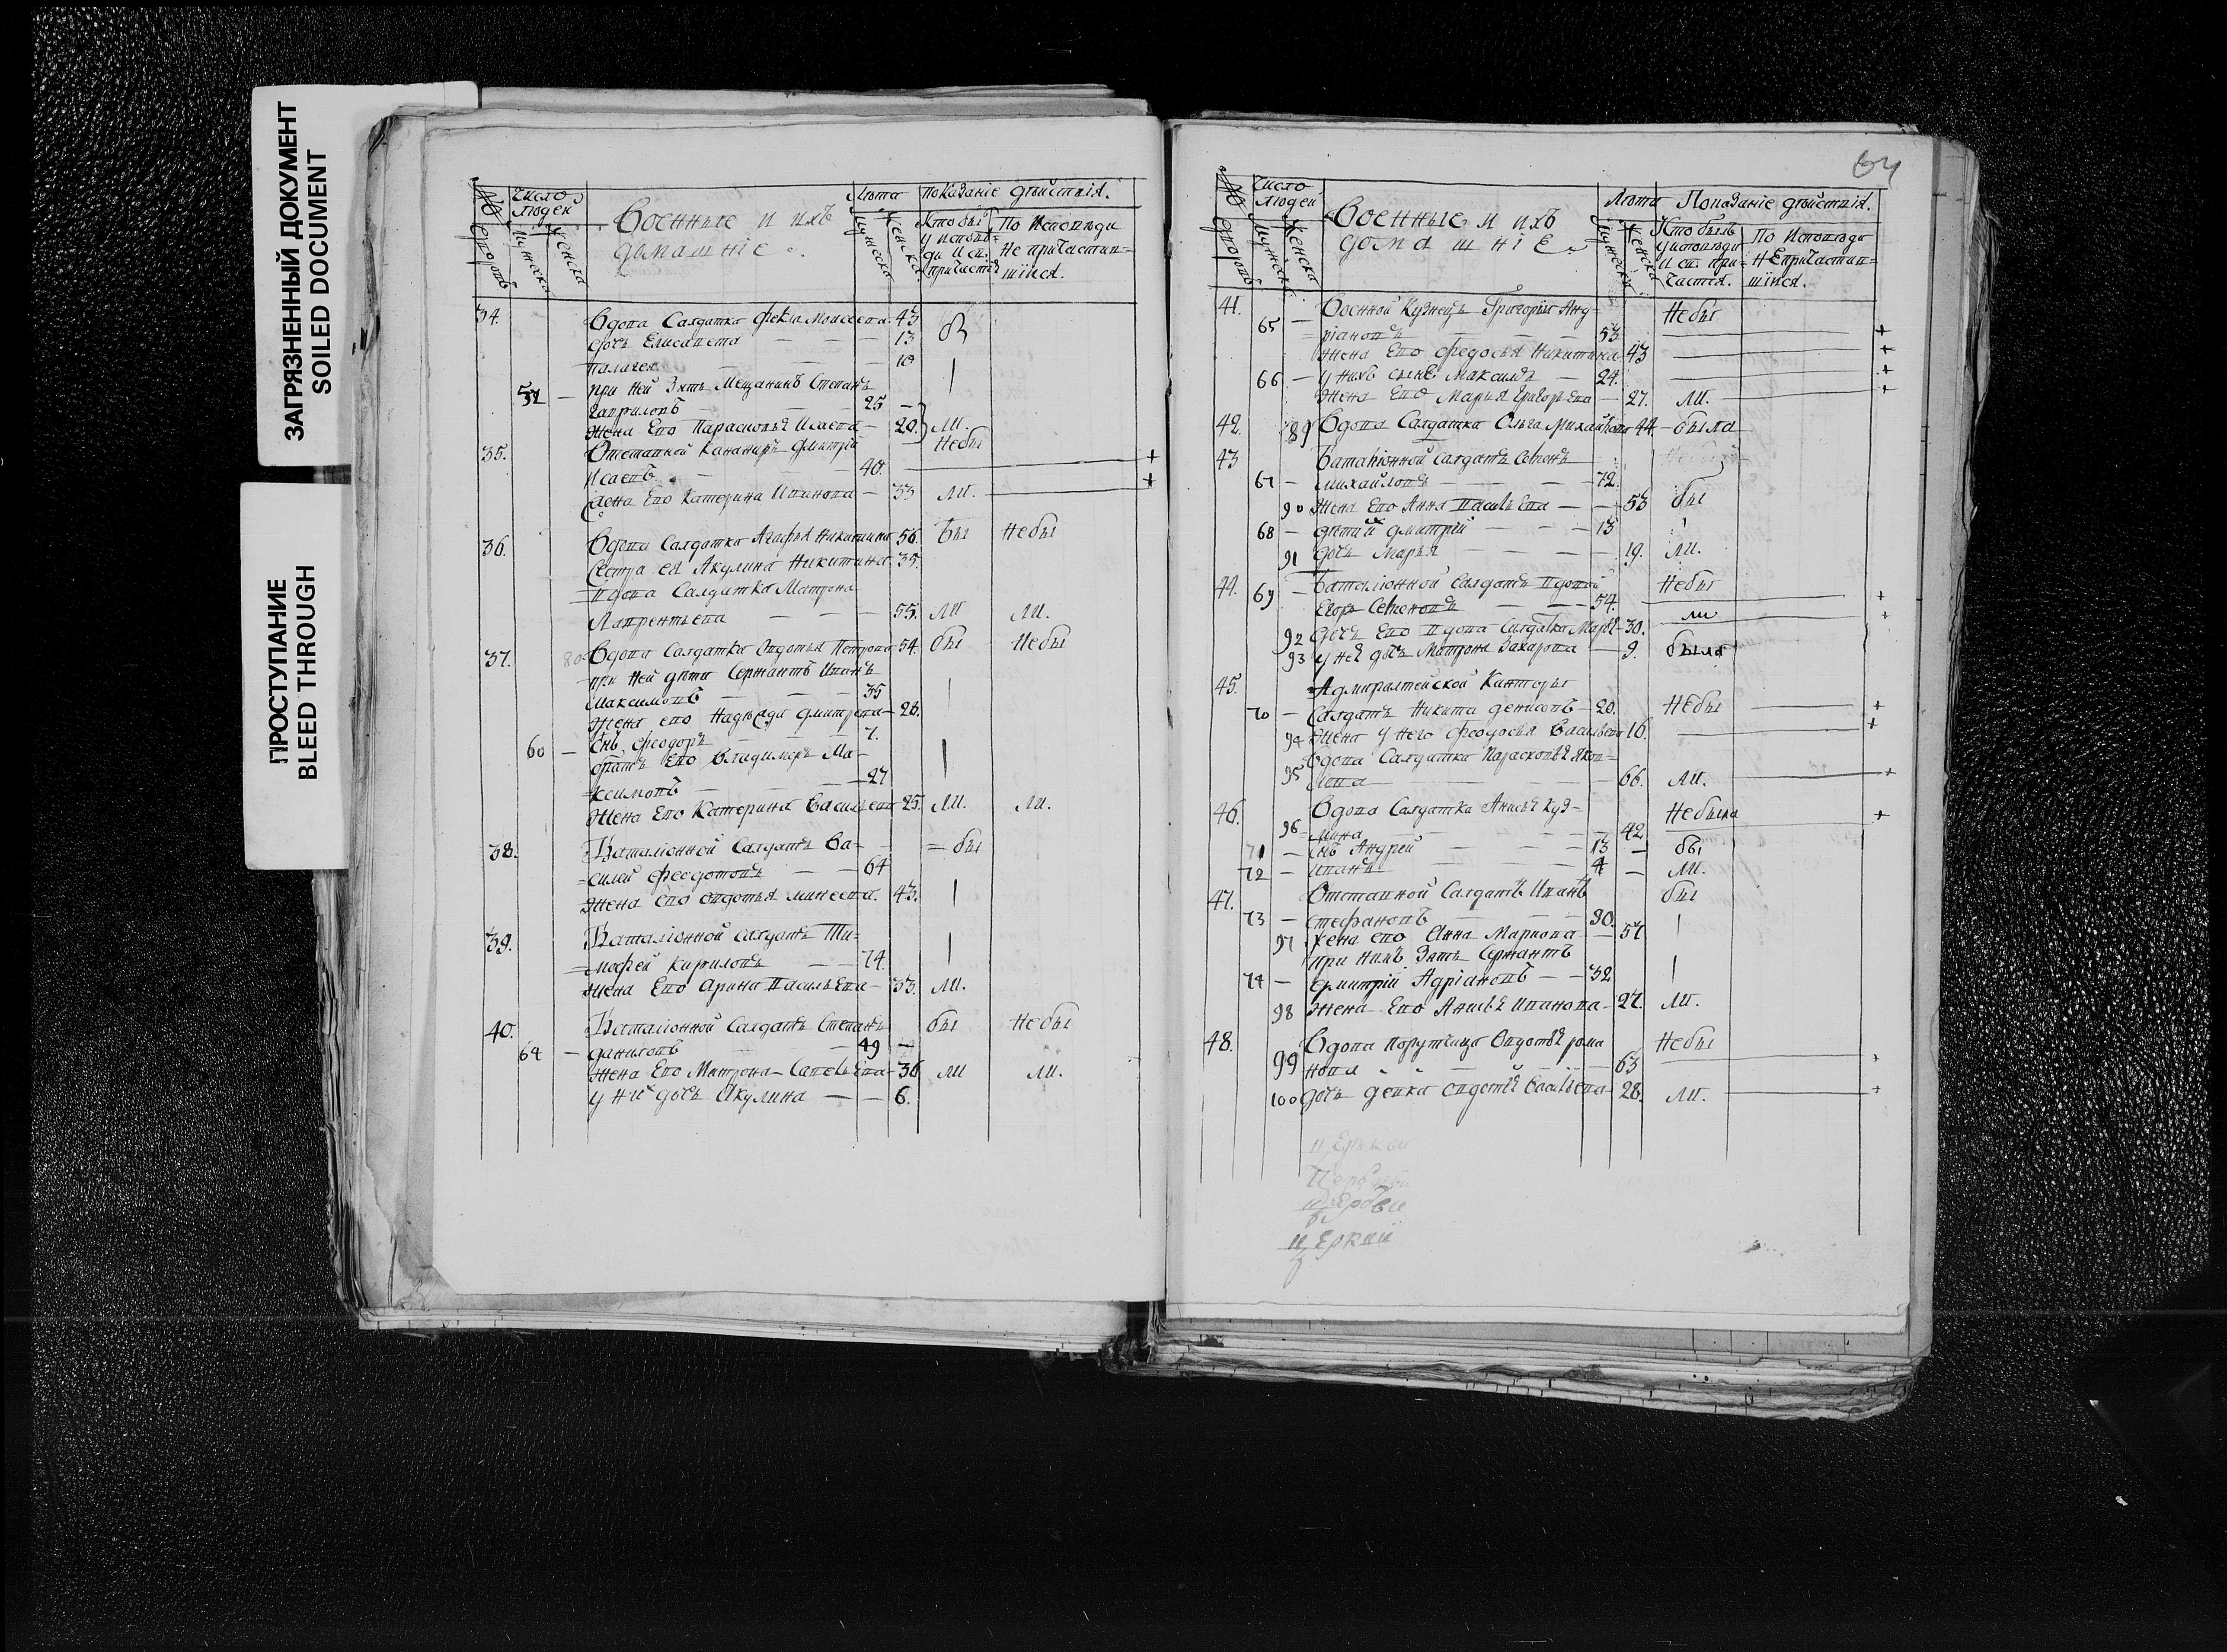 ЗАГРЯЗНЕННЫЙ ДОКУМЕНТ
SOILED DOCUMENT
ПРОСТУПАНИЕ
BLEED THROUGH
Число людей
Военные и ихъ
домашніе.
Лѣта
Показаніе дѣйствія.
Мужеска
Женска
Кто былъ
у исповѣ-
ди и св.
причастія
По Исповѣди
не причастив-
шійся.
34. Вдова Салдатка Фекла Моисеева 43
дочь Елисавета — — — 13
Палагея 10
при ней Зять Мещанинъ Степанъ
Гавриловъ — — — 25
Жена Его Парасковья Исаева — 20. ли.
35. Отставной Кананиръ Дмитрій Небы
Исаевъ — 40. +
Жена Его Катерина Иванова — 33 ли. +
36. Вдова Салдатка Агафья Никитина 56. бы Небы
Сестра ея Акулина Никитина 35.
Вдова Салдатка Матрона
Лаврентьева — — 55. ли ли.
37. 80 Вдова Салдатка Овдотья Петрова 54. бы Небы
при ней дѣти Сержантъ Иванъ
Максимовъ — — — 35
Жена его Надежда Дмитрева — 26.
Снъ Феодоръ — — — 7.
60 — братъ Его Владимеръ Ма-
ксимовъ — 27
Жена Его Катерина Васильева 25. ли. ли.
38. Баталіонной Салдатъ Ва- бы
силей Феодотовъ — — 64
Жена его Овдотья Минеева. 43.
39. Баталіонной Салдатъ Ти-
мофей Кириловъ — — 74.
Жена Его Арина Васильева — 33. ли.
40. Баталіонной Салдатъ Степанъ бы Небы
64 — Даниловъ 49 —
Жена Его Матрона Савельева — 36 ли ли.
у ней дочь Акулина — — 6.
64
Число людей
Военные и ихъ
домашніе.
Лѣта
Показаніе дѣйствія.
Мужеска
Женска
Кто былъ
у исповѣди
и св. при-
частія.
По Исповѣди
Непричастив-
шійся.
41. Военной Кузнецъ Григорій Анд- Небы
65 — ріановъ 53 +
Жена Его Федосья Никитина 43 +
66 — у нихъ сынъ Максимъ — 24. +
Жена Его Марья Григорьева — 27. ли.
42. 89 Вдова Салдатка Ольга Михайлова 44 — была
43 Баталіонной салдатъ Семенъ
67 — Михайловъ — — — 72.
90 Жена Его Анна Васильева — — 53 бы
68 — дѣти Дмитрій — — — 13
91 дочь Марья — — — 19. ли.
44. Баталіонной Салдатъ Вдовой Небы
69 — Егоръ Семеновъ — — — 54. +
92 дочь Его Вдова Салдатка Марья — 30. ли +
93 у ней дочь Матрона Захарова — 9. была
45. Адмиралтейской Канторы
70 — Салдатъ Никита Денисовъ — 20. Небы +
94 Жена у него Феодосья Васильева 16. +
Вдова Салдатка Парасковья Яков-
95 лева — 66. ли. +
46. Вдова Салдатка Анисья Куз- Небыла
96 мина — — — 42 +
71 — снъ Андрей — — — 13 — бы
72 — Иванъ — — — 4 — ли.
47. Отставной Салдатъ Иванъ бы
73 — Стефановъ — — — 90.
97 Жена его Анна Маркова — 57
при нихъ Зять Сержантъ
74 — Дмитрій Адріановъ — — 32
98 Жена Его Анисья Иванова — 27. ли.
48. Вдова Порутчица Овдотья рома Небы
99 нова — 63 +
100 дочь девка Овдотья Васильева — 28. ли. +
Церкви